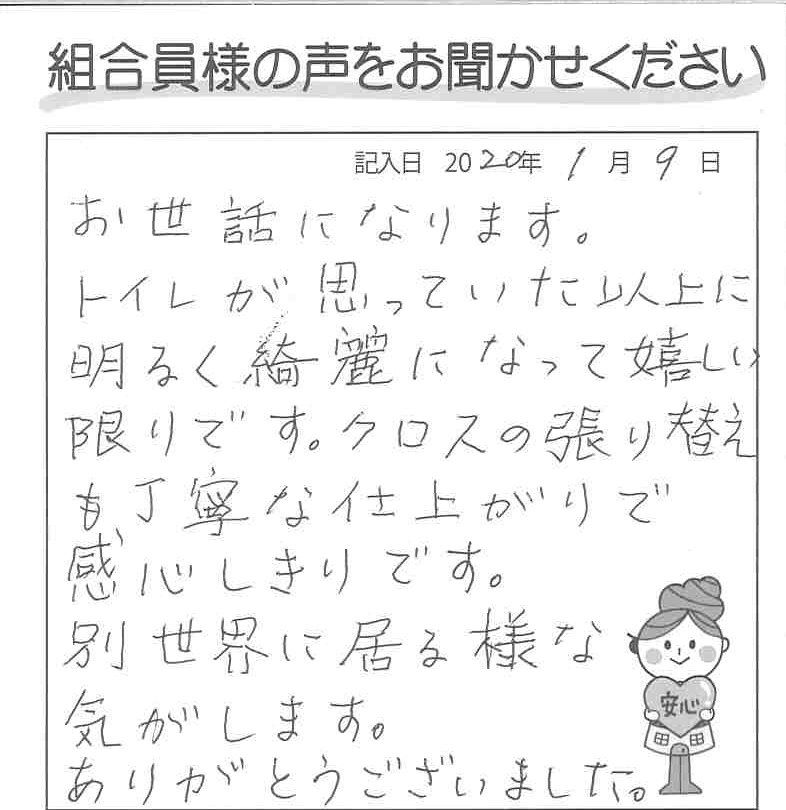 組合員様の声をお聞かせください
記入日 2020年 1月 9日
お世話になります。
トイレが思っていた以上に
明るく綺麗になって嬉しい
限りです。クロスの張り替え
も丁寧な仕上がりで
感心しきりです。
別世界に居る様な
気がします。
ありがとうございました。
安心